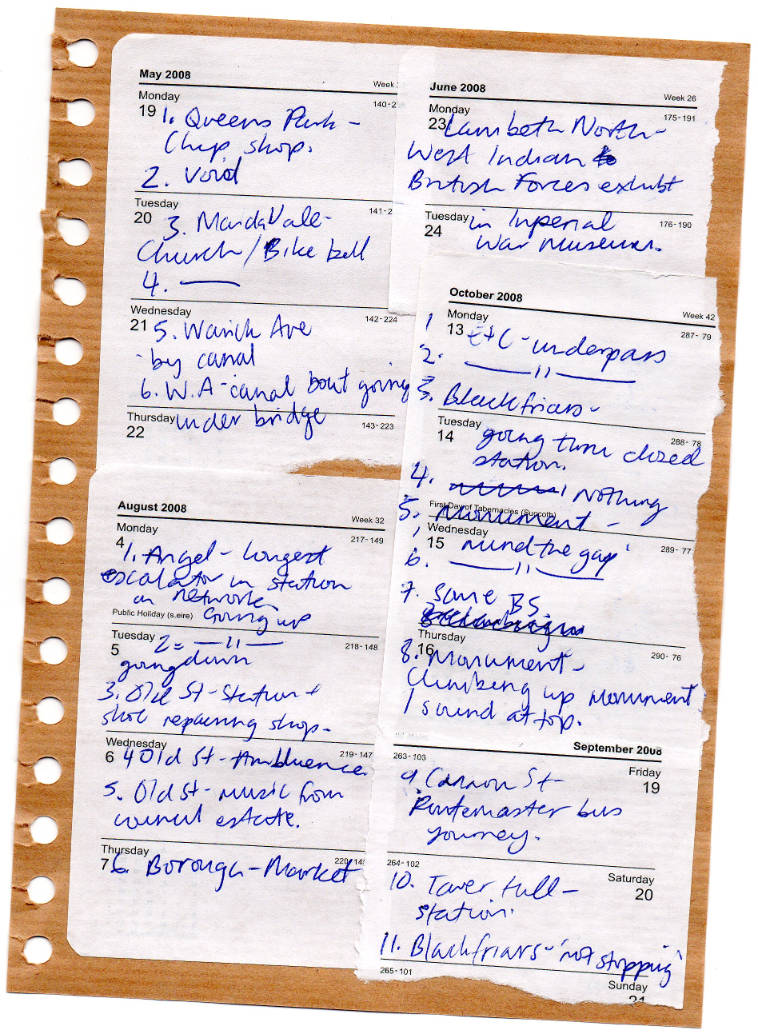 May 2008
Week
Monday
140-2
19 1. Queens Park -
Chip shop.
2. Void
Tuesday
141-2
20 3. Maida Vale -
Church / Bike bell
4. ——
Wednesday
142-224
21 5. Warick Ave
- by canal
6. W.A - canal boat going
Thursday under bridge
143-223
22
June 2008
Week 26
Monday
175-191
23 Lambeth North -
West Indian
British Forces exhibt
Tuesday in Inperial
176-190
24 War Museum.
August 2008
Week 32
Monday
217-149
4 1. Angel - longest
escalator in station
on network
Public Holiday (s.eire) Going up
Tuesday 2 = —— 11 ——
218-148
5 going down
3. Old St - Station +
shoe repairing shop.
Wednesday
219-147
6 4 Old St - Ambluence
5. Old St - music from
council estate.
Thursday
220-145
7 6. Borough - Market
October 2008
Week 42
Monday
287- 79
1 13 E+C - underpass
2. —— 11 ——
3. Blackfriars -
Tuesday
288- 78
14 going thru closed
station.
4. Nothing
First Day of Tabernacles (Succoth)
5. Monument -
Wednesday
289- 77
15 'mind the gap'
6. —— 11 ——
7. Same BS
Thursday
290- 76
16
8. Monument -
Climbing up monument
/ sound at top.
September 2008
263-103
Friday
19
9. Cannon St -
Routemaster bus
journey.
264-102
Saturday
20
10. Tower Hill -
station.
11. Blackfriars - 'not stopping'
265-101
Sunday
21